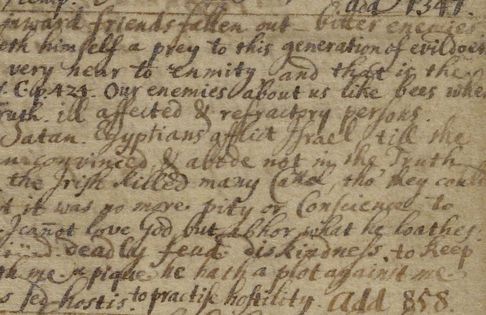 add 1341.
inward friends fallen out bitter enemies
eth himself a prey to this generation of evildoer
very near to enmity, and that is the
Our enemies about us like bees whe
ruth. ill affected & refractory persons.
Satan. Egyptians afflict Israel till she
convinced & abide not in the Truth
the Irish killed many Catel, tho' they coul
it was no more pity or Conscience to
cannot love God but abhor what he loathes.
deadly feud diskindness. to keep
me. pique he hath a plot against me
hostis. to practise hostility. add 858.